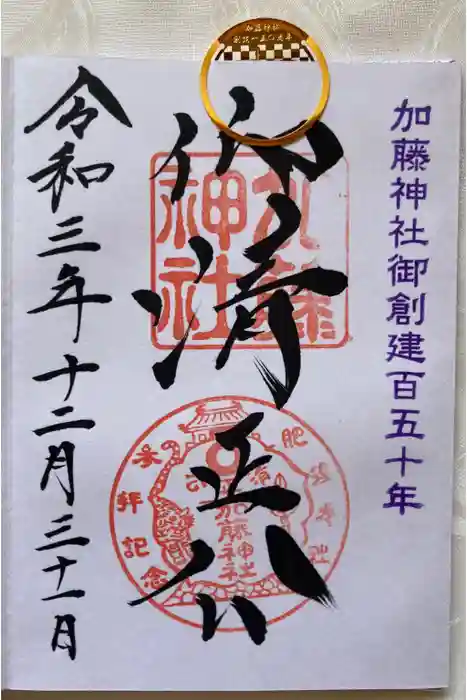 加藤神社
創建一五〇周年
加藤神社御創建百五十年
仰清正公
加藤神社
加藤神社
参拝記念
令和三年十二月三十一日